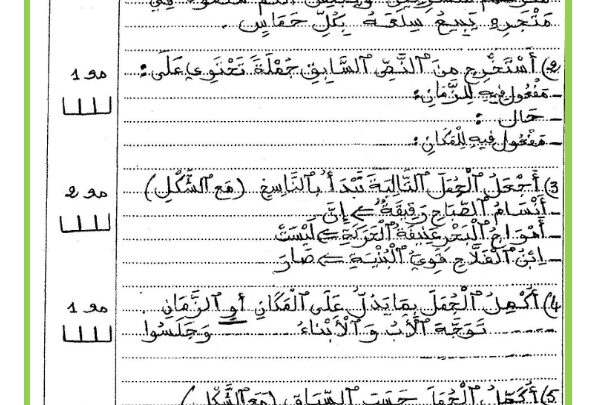 مَتْجَرِهِ يَبِيعُ سِلْعَهُ بِكُلِّ حَمَاسٍ .
2) أَسْتَخْرِجُ مِنَ النَّصِّ السَّابِقِ جُمْلَةً تَحْتَوِي عَلَى :
مع 1
- مَفْعُول فِيهِ لِلزَّمَانِ:
- حَال :
- مَفْعُول فِيهِ لِلْمَكَانِ:
3) أَجْعَلُ الْجُمَلَ التَّالِيَةَ تَبْدَأُ بِالنَّاسِخِ (مَعَ الشَّكْلِ)
مع 2
- أَنْسَامُ الصَّبَاحِ رَقِيقَةٌ => إِنَّ
- أَمْوَاجُ الْبَحْرِ عَنِيفَةُ الْحَرَكَةِ => لَيْسَتْ
- اِبْنُ الْفَلَّاحِ قَوِيُّ الْبُنْيَةِ => صَارَ
4) أُكْمِلُ الْجُمَلَ بِمَا يَدُلُّ عَلَى الْمَكَانِ أَوِ الزَّمَانِ .
مع 1
------ تَوَجَّهَ الْأَبُ وَ الْأَبْنَاءُ ------ وَجَلَسُوا ------
5) أُكَمِّلُ الْجُمَلَ حَسَبَ السِّيَاقِ (مَعَ الشَّكْلِ)